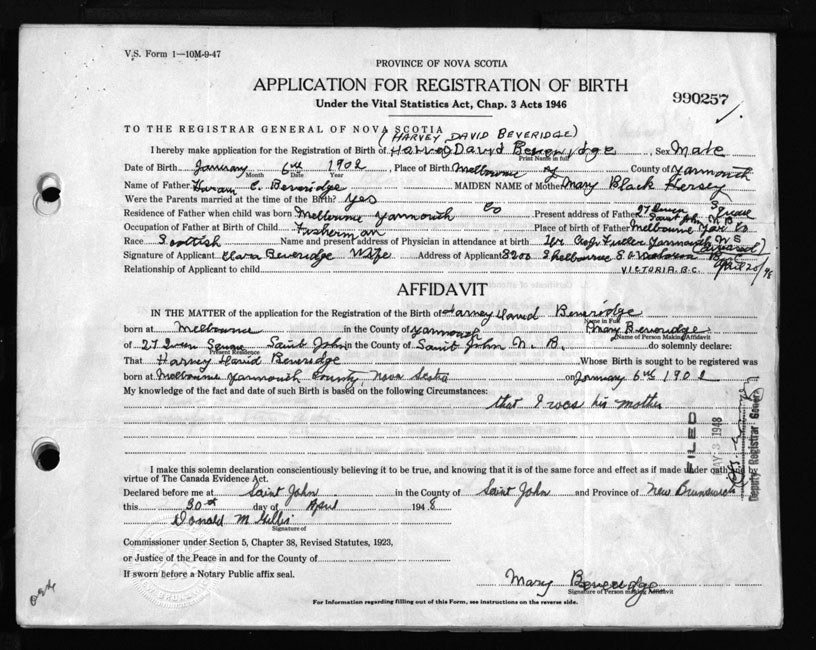 V.S. Form 1—10M-9-47
PROVINCE OF NOVA SCOTIA
APPLICATION FOR REGISTRATION OF BIRTH
Under the Vital Statistics Act, Chap. 3 Acts 1946
990257
TO THE REGISTRAR GENERAL OF NOVA SCOTIA
(HARVEY DAVID BEVERIDGE)
I hereby make application for the Registration of Birth of Harvey David Beveridge, Sex Male
Print Name in full
Date of Birth January 6th 1902, Place of Birth Melbourne County of Yarmouth
Month Date
Name of Father Hiram C. Beveridge MAIDEN NAME of Mother Mary Black Hersey
Were the Parents married at the time of the Birth? Yes 27 Queen Square
Residence of Father when child was born Melbourne Yarmouth Co Present address of Father Saint John N.B.
Occupation of Father at Birth of Child Fisherman Place of birth of Father Melbourne Yar Co
Race Scottish Name and present address of Physician in attendance at birth Fuller Yarmouth N S
Signature of Applicant Clara Beveridge Wife Address of Applicant 3200 Shelbourne St Victoria B.C.
Relationship of Applicant to child VICTORIA. B.C. April 20/48
AFFIDAVIT
IN THE MATTER of the application of the Registration of the Birth of Harvey David Beveridge
Name in Full
born at Melbourne in the County of Yarmouth Mary Beveridge
Name of Person Making Affidavit
of 27 Queen Square Saint John in the County of Saint John N. B. do solemnly declare:
Present Residence
That Harvey David Beveridge Whose Birth is sought to be registered was
born at Melbourne Yarmouth County, Nova Scotia on January 6th 1902
My knowledge of the fact and date of such Birth is based on the following Circumstances:
that I was his mother
FILED
MAY 3 1948
Deputy Registrar General
I make this solemn declaration conscientiously believing it to be true, and knowing that it is of the same force and effect as if made under oath by
virtue of The Canada Evidence Act.
Declared before me at Saint John in the County of Saint John and Province of New Brunswick
this 30th day of April 1948
Donald M Gillis
Signature of
Commissioner under Section 5, Chapter 38, Revised Statutes, 1923,
or Justice of the Peace in and for the County of
If sworn before a Notary Public affix seal.
Mary Beveridge
Signature of Person making Affidavit
For Information regarding filling out of this Form, see instructions on the reverse side.